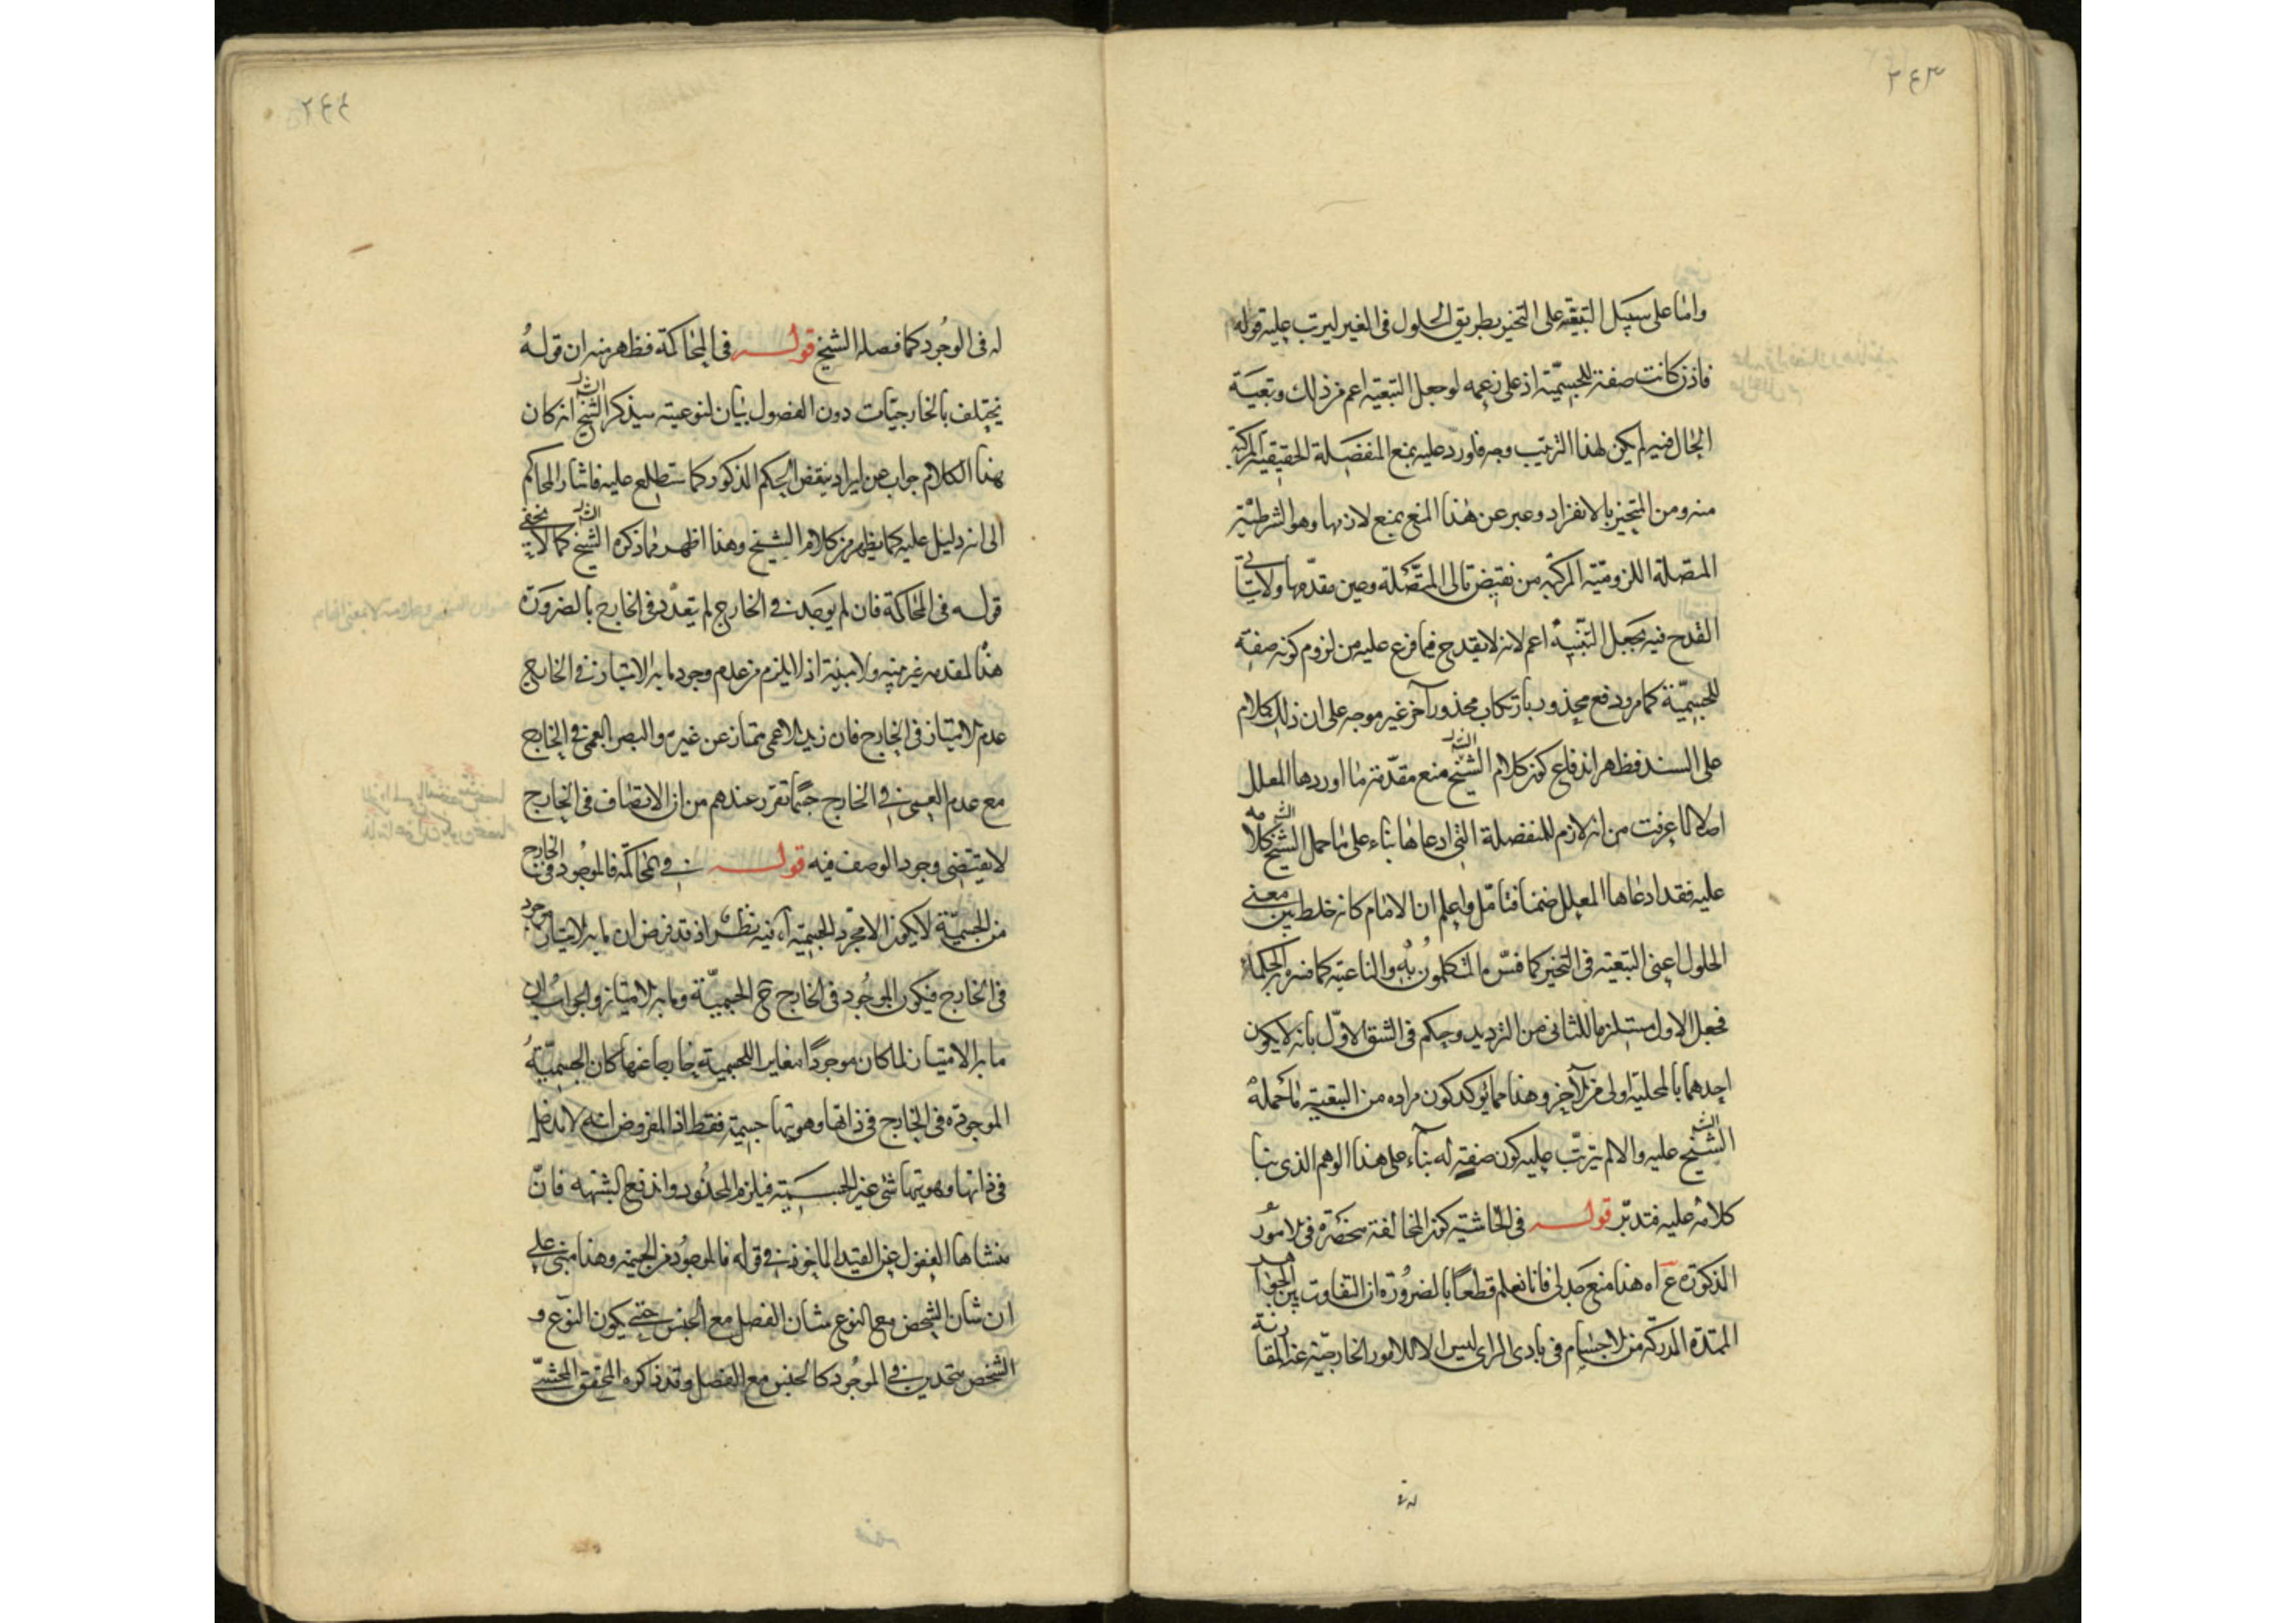 ٢٤٣
واما على سبيل التبعية على التحيز بطريق الحلول فى الغير ليرتب عليه قوله
فاذن كانت صفة للجسمية اذ على زعمه لو جعل التبعية اعم من ذلك وتبعية
الحال فيه لم يكن لهذا الترتيب وجه فاورد عليه بمنع المنفصلة الحقيقية المركبة
منه ومن التحيز بالانفراد وعبر عن هذا المنع بمنع لازمها وهو الشرطية
المتصلة اللزومية المركبة من نقيض تالى المتصلة وعين مقدمها ولا يتأتى
القدح فيه بجعل التبعية اعم لانه لا يقدح فيما فرع عليه من لزوم كونه صفة
للجسمية كما مر ودفع محذور بارتكاب محذور آخر غير موجه على ان ذلك كلام
على السند فظهر اندفاع كون كلام الشيخ منع مقدمة ما اوردها المعلل
اصلا لما عرفت من انه لازم للمنفصلة التى ادعاها بناء على ما حمل الشيخ كلامه
عليه فقد ادعاها المعلل ضمنا فتأمل واعلم ان الامام كانه خلط بين معنى
الحلول اعنى التبعية فى التحيز كما فسره المتكلمون به والناعتية كما فسره الحكماء
فجعل الاول مستلزما للثانى من الترديد وحكم فى الشق الاول بانه لا يكون
احدهما بالمحلية اولى من الآخر وهذا مما يؤكد كون مراده من التبعية ما حمله
الشيخ عليه والا لم يترتب عليه كون صفة له بناء على هذا الوهم الذى بنا
كلامه عليه فتدبر قوله فى الحاشية كون المخالفة منحصرة فى الامور
المذكورة ع اه هذا منع جدلى فانا نعلم قطعا بالضرورة ان التفاوت بين الجواهر
الممتدة المدركة من الاجسام فى بادى الراى ليس الا للامور الخارجية عنه المقارنة
٢٤٤
له فى الوجود كما فصله الشيخ قوله فى المحاكمة فظهر منه ان قوله
يختلف بالخارجيات دون الفصول بيان لنوعيته سيذكر الشيخ انه كان
هذا الكلام جواب عن ايراد ينقض الحكم المذكور كما ستطلع عليه فاشار المحاكم
الى انه دليل عليه كما يظهر من كلام الشيخ وهذا اظهر مما ذكره الشيخ كما لا يخفى
قوله فى المحاكمة فان لم يوجد فى الخارج لم يتعدد فى الخارج بالضرورة
هذه المقدمة غير بينة ولا مبينة اذ لا يلزم من عدم وجود ما به الامتياز فى الخارج
عدم الامتياز فى الخارج فان زيد الاعمى ممتاز عن غيره والبصر العمى فى الخارج
مع عدم العمى فى الخارج حيثما تقرر عندهم من ان الاتصاف فى الخارج
لا يقتضى وجود الوصف فيه قوله فى المحاكمة فالموجود فى الخارج
من الجسمية لا يكون الا مجرد الجسمية آه فيه نظر اذ قد فرض ان ما به الامتياز موجود
فى الخارج فيكون الموجود فى الخارج ح الجسمية وما به الامتياز والجواب ان
ما به الامتياز لما كان موجودا مغايرا للجسمية خارجا عنها كان الجسمية
الموجودة فى الخارج فى ذاتها وهويتها جسمية فقط اذ المفروض انه لا يدخل
فى ذاتها وهويتها شئ غير الجسمية فيلزم المحذور واندفع الشبهة فان
منشاها الغفول عن القيد الماخوذ فى قوله فالموجود من الجسمية وهذا مبنى على
ان شان الشخص مع النوع شان الفصل مع الجنس حتى يكون النوع و
الشخص متحدين فى الوجود كالجنس مع الفصل وقد ذكره المحقق المحشى